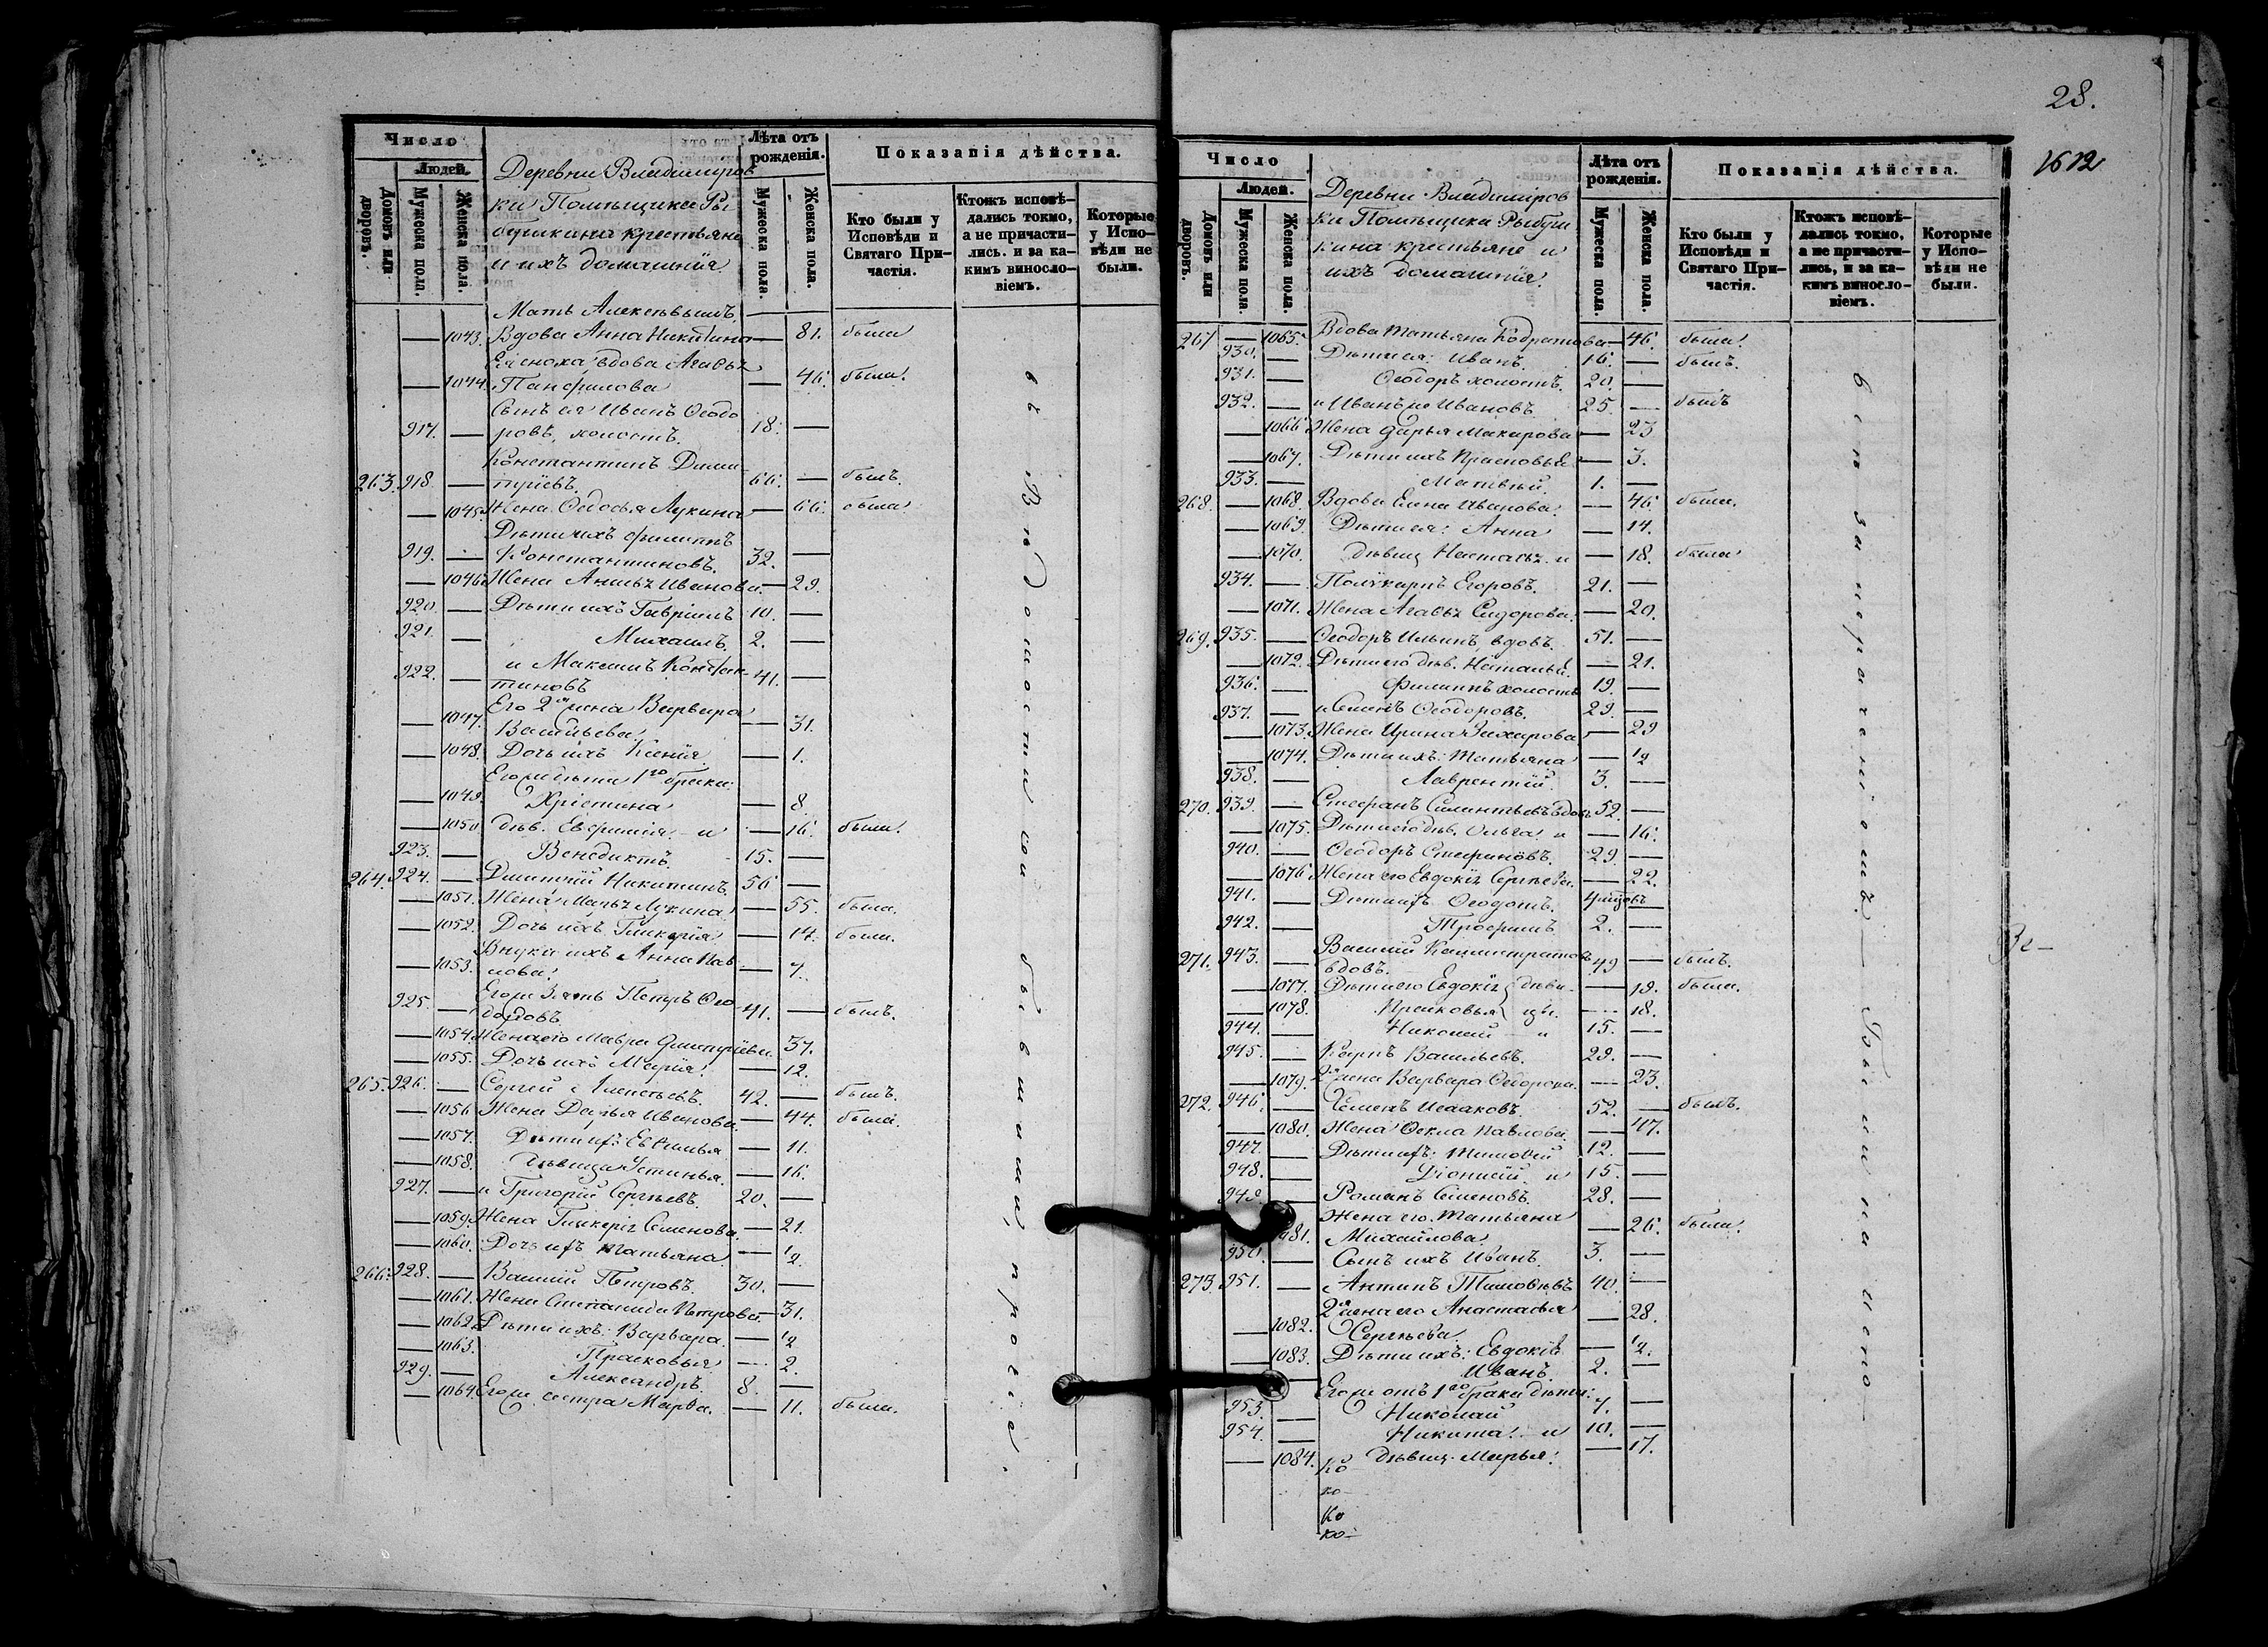 Число
Людей.
Домовъ или дворовъ.
Мужеска пола.
Женска пола.
Деревни Владимиров
ки Помѣщика Ры
бушкина крестьяне
и ихъ домашнія.
Лѣта отъ рожденія.
Мужеска пола.
Женска пола.
Показанія дѣйства.
Кто были у Исповѣди и Святаго Причастія.
Ктожъ исповѣдались токмо, а не причастились. и за какимъ винословіемъ.
Которые у Исповѣди не были.
Мать Алексѣевыхъ,
— 1043. Вдова Анна Никитина — 81. была
Ея сноха вдова Агаѳья
— 1044. Панфилова — 46. была.
Сынъ ея Иванъ Ѳеодо
917. — ровъ, холостъ. 18. —
Константинъ Дими
263. 918. — тріевъ. 66. — былъ.
— 1045. Жена Ѳедосья Лукина — 66. была.
Дѣти ихъ Филиппъ
919. — Константиновъ. 32. —
— 1046. Жена Анисья Иванова. — 29.
920. — Дѣти ихъ Гавріилъ 10. —
921. — Михаилъ. 2. —
922. — и Максимъ Констан-
тиновъ 41. —
Его 2я жена Варвара
— 1047. Васильева. — 31.
— 1048. Дочь ихъ Ксенія — 1.
Его же дѣти 1го брака:
— 1049. Христина — 8.
— 1050. дѣв. Евфимія. и — 16. была.
923. — Венедиктъ. 15. —
264. 924. — Дмитрій Никитинъ. 56 —
— 1051. Жена Марья Лукина — 55. была.
— 1052. Дочь ихъ Гликерія — 17. была.
Внука ихъ Анна Пав
— 1053. лова. — 7.
Его же Зять Петръ Ѳео
925. — доровъ 41. — былъ.
— 1054. Жена его Мавра Дмитріева. 37.
— 1055. Дочь ихъ Марія. — 12.
265. 926. — Сергей Алексѣевъ. 42. — былъ.
— 1056 Жена Дарья Иванова. — 44. была.
— 1057. Дѣти ихъ: — 11.
— 1058. дѣвица Устинья. — 16.
927. — и Григорій Сергѣевъ. 20. —
— 1059. Жена Гликерія Семенова. — 21.
— 1060. Дочь ихъ Татьяна — ½.
266. 928. — Василій Петровъ. 30. —
— 1061. Жена Степанида Петрова. — 31.
— 1062. Дѣти ихъ: Варвара. — ½
— 1063. Прасковья — 2.
929. — Александръ. 8. —
— 1064. Его же сестра Марѳа. — 11. была.
въ Вѣдомости сей бывшими, проса
28.
1612
Число
Людей.
Домовъ или дворовъ.
Мужеска пола.
Женска пола.
Деревни Владиміров
ки Помѣщика Рыбуш
кина крестьяне и
ихъ домашнія.
Лѣта отъ рожденія.
Мужеска пола.
Женска пола.
Показанія дѣйства.
Кто были у Исповѣди и Святаго Причастія.
Ктожъ исповѣдались токмо, а не причастились, и за какимъ винословіемъ.
Которые у Исповѣди не были.
267 — 1065. Вдова Татьяна Кодратова — 46. была.
930. — Дѣти ея: Иванъ. 16. — былъ.
931. — Ѳеодоръ холостъ. 20. —
932. — и Иванъ же Ивановъ. 25. — былъ
— 1066 Жена Дарья Макарова — 23
— 1067. Дѣти ихъ Прасковья — 3.
933. — Матвѣй. 1. —
268. — 1068. Вдова Елена Иванова. — 46 была.
— 1069. Дѣти ея: Анна — 14.
— 1070. дѣвиц. Наталья. и — 18. была
934. — Поликарпъ Егоровъ. 21. —
— 1071. Жена Агаѳья Сидорова. — 20.
269. 935. — Ѳеодоръ Ильинъ, вдовъ. 51. —
— 1072. Дѣти его дѣв. Наталья. — 21.
936. — Филиппъ холостъ 19. —
937. — и Семенъ Ѳеодоровъ. 29. —
— 1073. Жена Ирина Захарова — 29
— 1074. Дѣти ихъ: Татьяна — ½
938. — Лаврентій. 3. —
270. 939. — Стефанъ вдовъ 52. —
— 1075. Дѣти его дѣв. Ольга и — 16.
940. — Ѳеодоръ Стефановъ. 29. —
— 1076 Жена его Евдокія Сергѣева. — 22.
941. — Дѣти ихъ Ѳеодотъ. 4 —
942. — Трофимъ 2. —
271. 943. — Василій Калистратовъ
вдовъ. 49 — былъ.
— 1077. Дѣти его Евдокія дѣви- — 19. была.
— 1078. Прасковья цы. — 18.
944. — Николай и 15. —
945. — Карпъ Васильевъ. 29. —
— 1079. 2я жена Варвара Ѳедорова. — 23.
272. 946. — Семенъ Исааковъ. 52. — былъ.
— 1080. Жена Ѳекла Павлова. — 47.
947. — Дѣти ихъ: Тимоѳей 12. —
948. — Діонисій. и 15. —
949. — Романъ Семеновъ. 28. —
Жена его Татьяна
1081. Михайлова. — 26. была.
950. — Сынъ ихъ Иванъ. 3. —
273. 951. — Антипъ Тимоѳѣевъ 40. —
2я жена его Анастасья
— 1082. Сергѣева. — 28.
— 1083. Дѣти ихъ: Евдокія — ½.
— Иванъ. 2. —
Его же отъ 1го брака дѣти:
953. — Николай 7. —
954. — Никита. и 10. —
— 1084. дѣвиц. Марья. — 17.
Ко
ко
Ко
ко-
всѣ за нераченіемъ. — Были на испо-